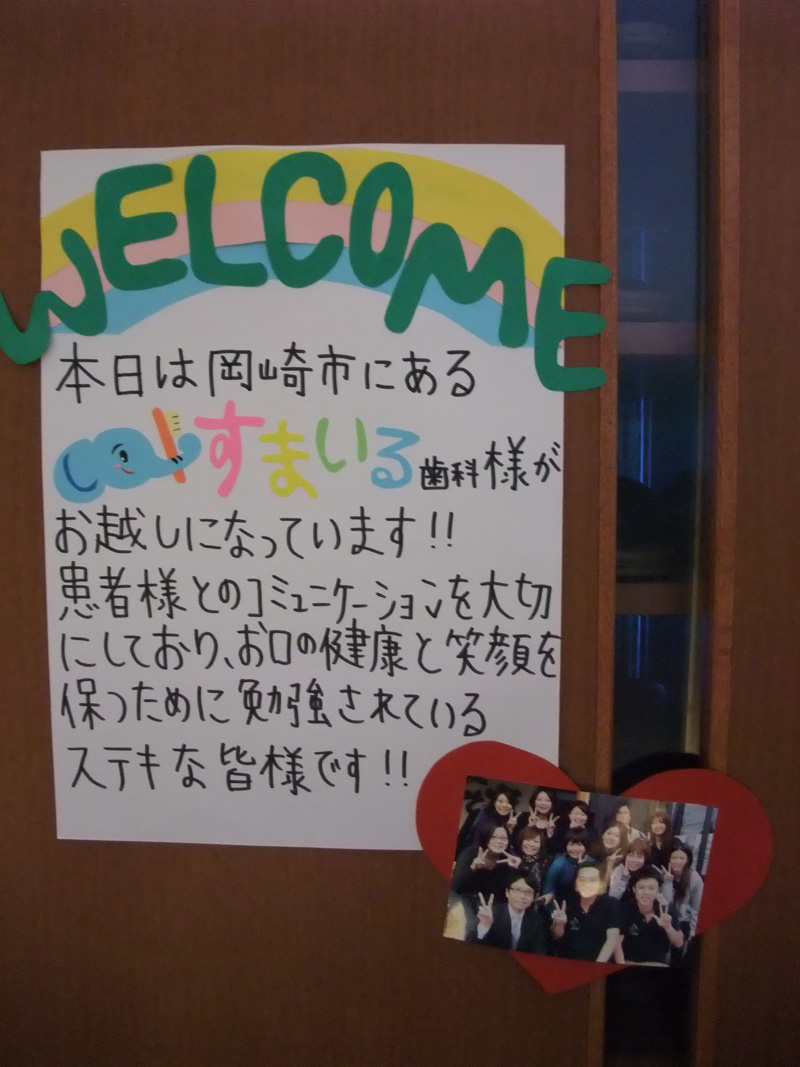 WELCOME
本日は岡崎市にある
すまいる歯科様が
お越しになっています!!
患者様とのコミュニケーションを大切
にしており、お口の健康と笑顔を
保つために勉強されている
ステキな皆様です!!